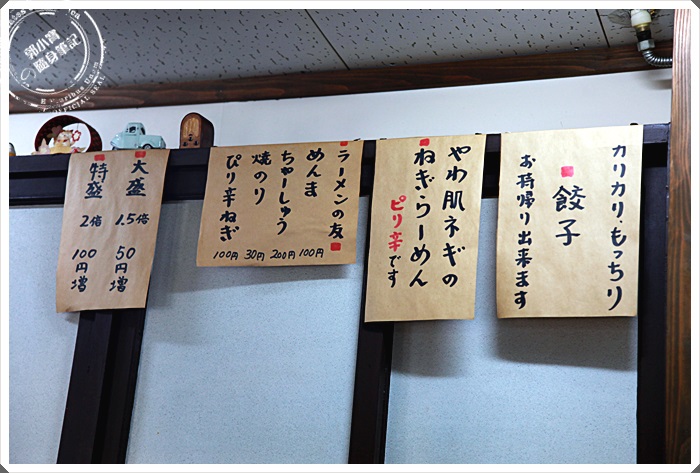 カリカリ・もっちり
餃子
お持帰り出来ます
やわ肌ネギの
ねぎらーめん
ピリ辛です
ラーメンの友
めんま 100円
ちゃーしゅう 200円
焼のり 30円
ぴり辛ねぎ 100円
大盛 1.5倍 50円増
特盛 2倍 100円増
隨身筆記